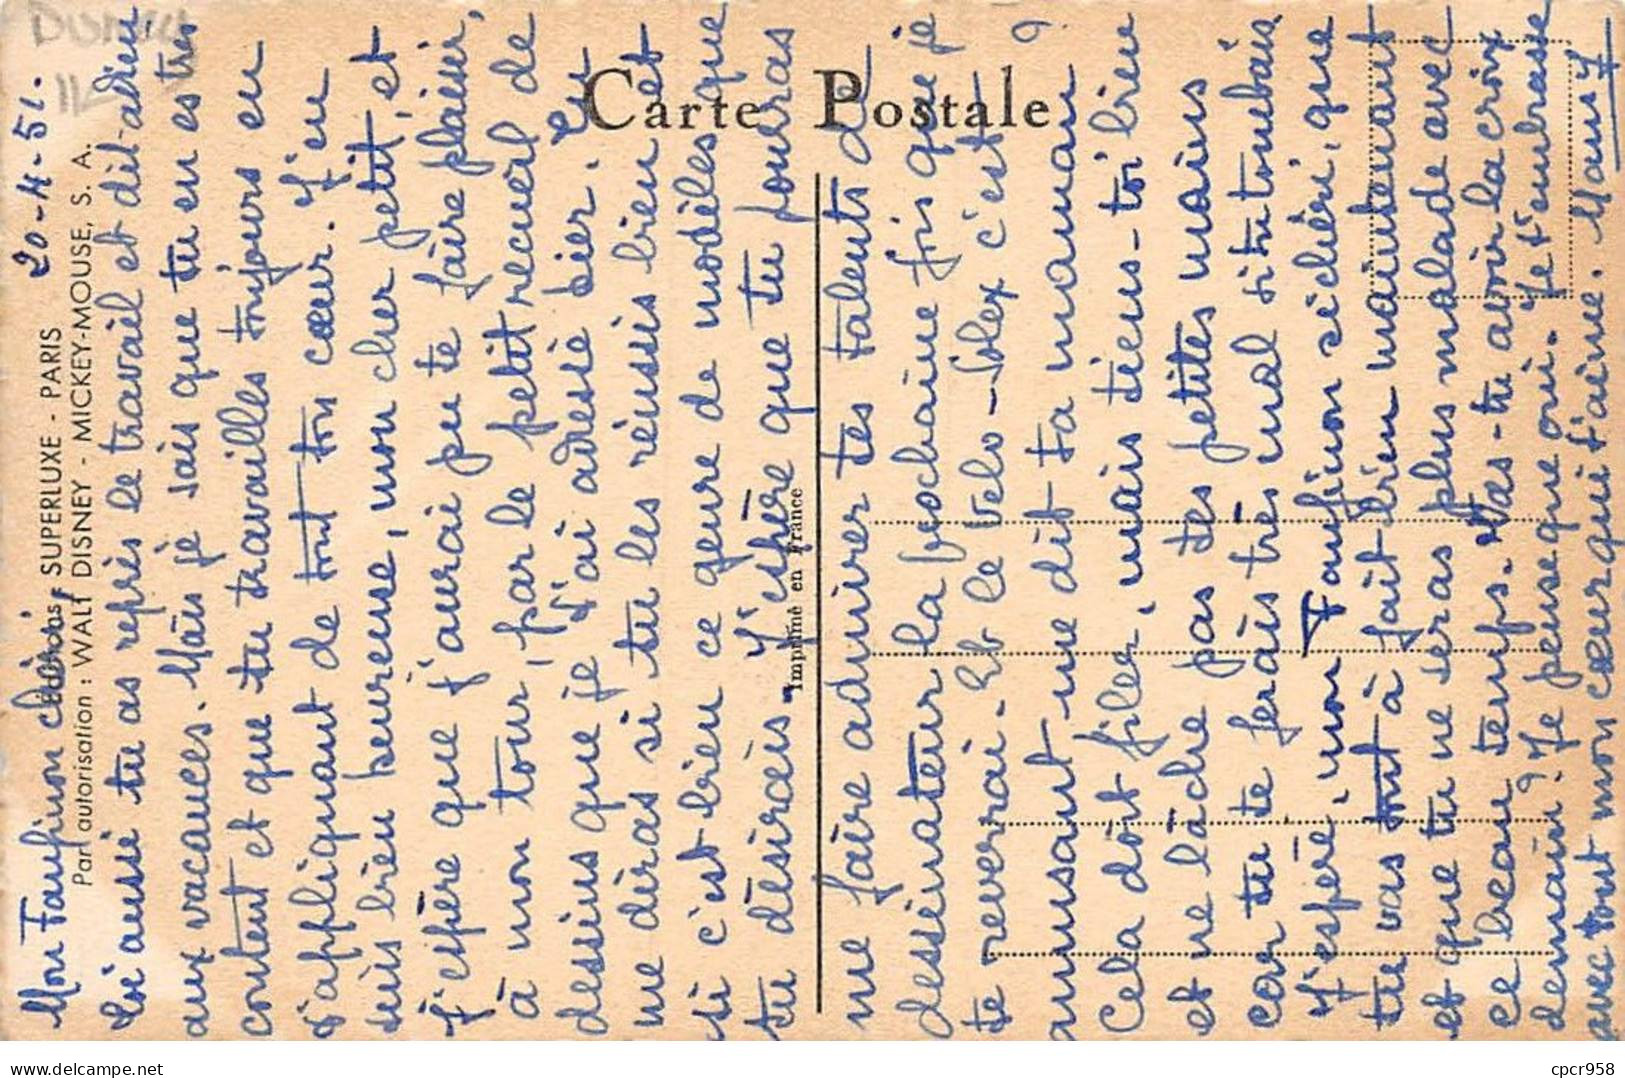 20-4-51.
Mon Fanfinon chéri,
toi aussi tu as repris le travail et dit adieu
aux vacances. Mais je sais que tu en es très
content et que tu travailles toujours en
t'appliquant de tout ton cœur. J'en
suis bien heureuse, mon cher petit, et
j'espère que j'aurai pu te faire plaisir,
à mon tour, par le petit recueil de
dessins que je t'ai adressé hier. Tu
me diras si tu les réussis bien et
si c'est bien ce genre de modèles que
tu désirais. J'espère que tu pourras
me faire admirer tes talents de
dessinateur la prochaine fois que je
te reverrai. Et le Velo-Solex c'est
amusant me dit ta maman ?
Cela doit filer, mais tiens-toi bien
et ne lâche pas tes petites mains
car tu te ferais très mal si tu tombais
J'espère, mon Fanfinon chéri, que
tu vas tout à fait bien maintenant
et que tu ne seras plus malade avec
ce beau temps. Vas-tu avoir la croix
demain ? Je pense que oui. Je t'embrasse
avec tout mon cœur qui t'aime. Mamy
Carte Postale
SUPERLUXE - PARIS
Par autorisation : WALT DISNEY - MICKEY-MOUSE, S. A.
Imprimé en France
Disney
cpcr958